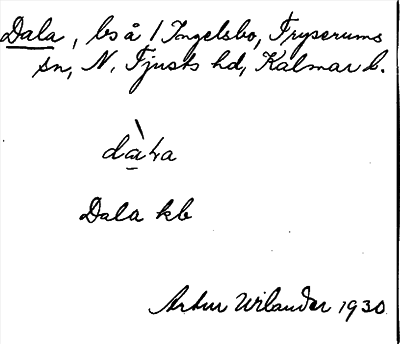 Dala, bs å 1 Ingelsbo, Fryserums
sn, N. Tjusts hd, Kalmar l.
dàɬa
Dala kb
Artur Wilander 1930